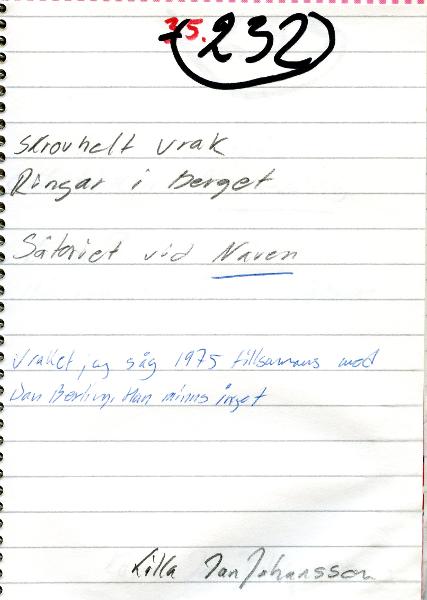 75.
232
Skrovhelt vrak
Ringar i Berget
Säteriet vid Naven
Vraket jag såg 1975 tillsammans med
Dan Berling. Han minns inget
Lilla Jan Johansson